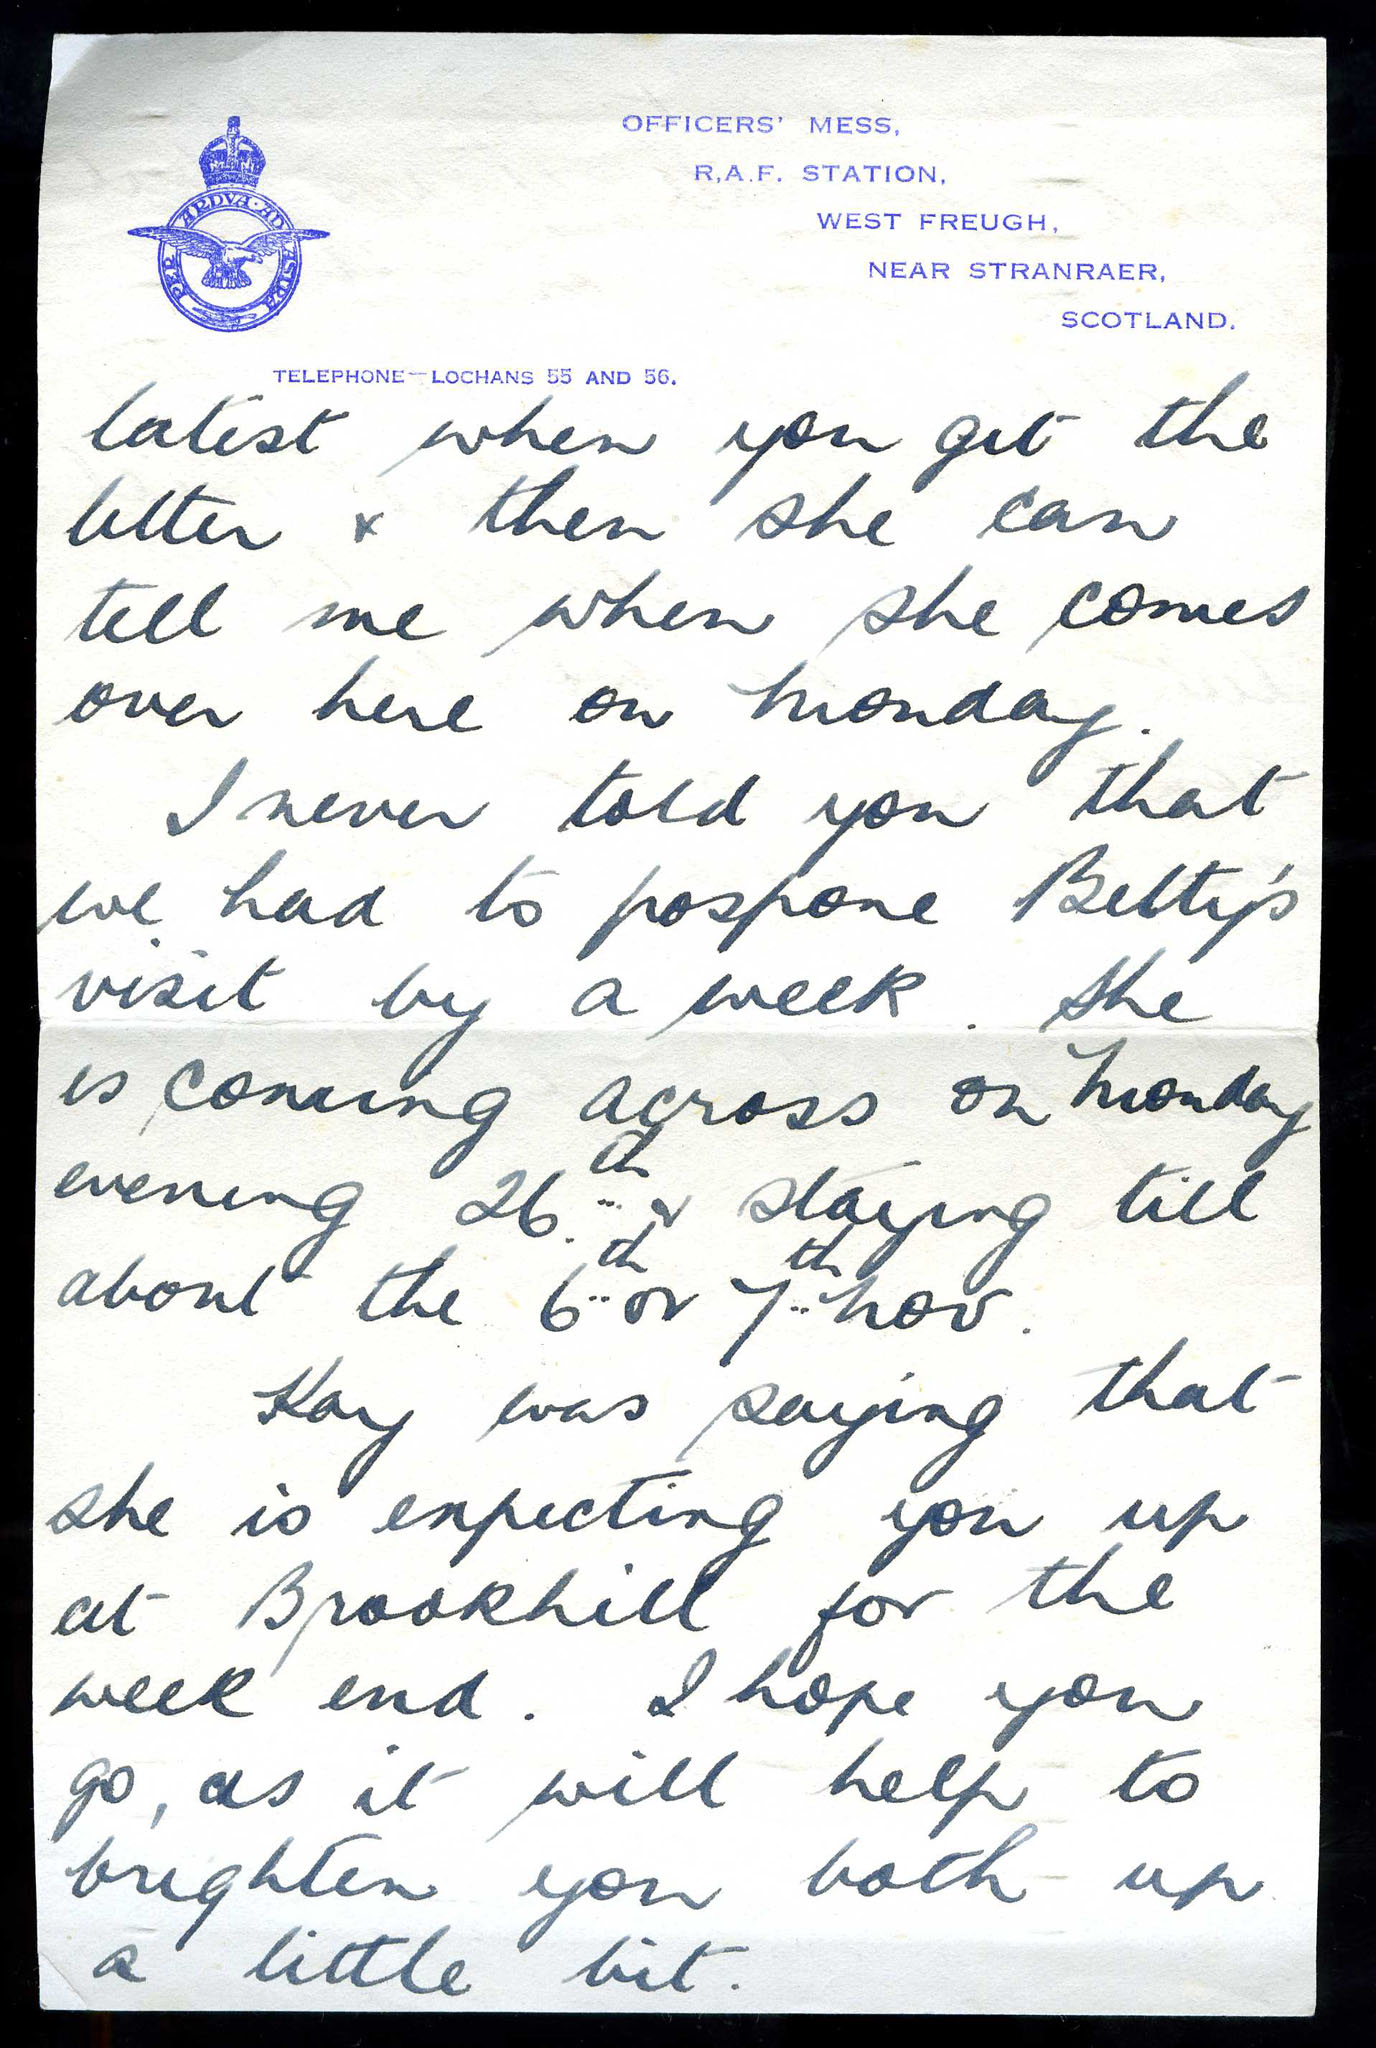 OFFICERS' MESS,
R.A.F. STATION,
WEST FREUGH,
NEAR STRANRAER,
SCOTLAND.
PER ARDVA AD ASTRA
TELEPHONE—LOCHANS 55 AND 56.
latest when you get the
letter & then she can
tell me when she comes
over here on Monday.
I never told you that
we had to pospone Betty's
visit by a week. She
is coming across on Monday
evening 26th & staying till
about the 6th or 7th Nov.
Kay was saying that
she is expecting you up
at Brookhill for the
week end. I hope you
go, as it will help to
brighten you both up
a little bit.